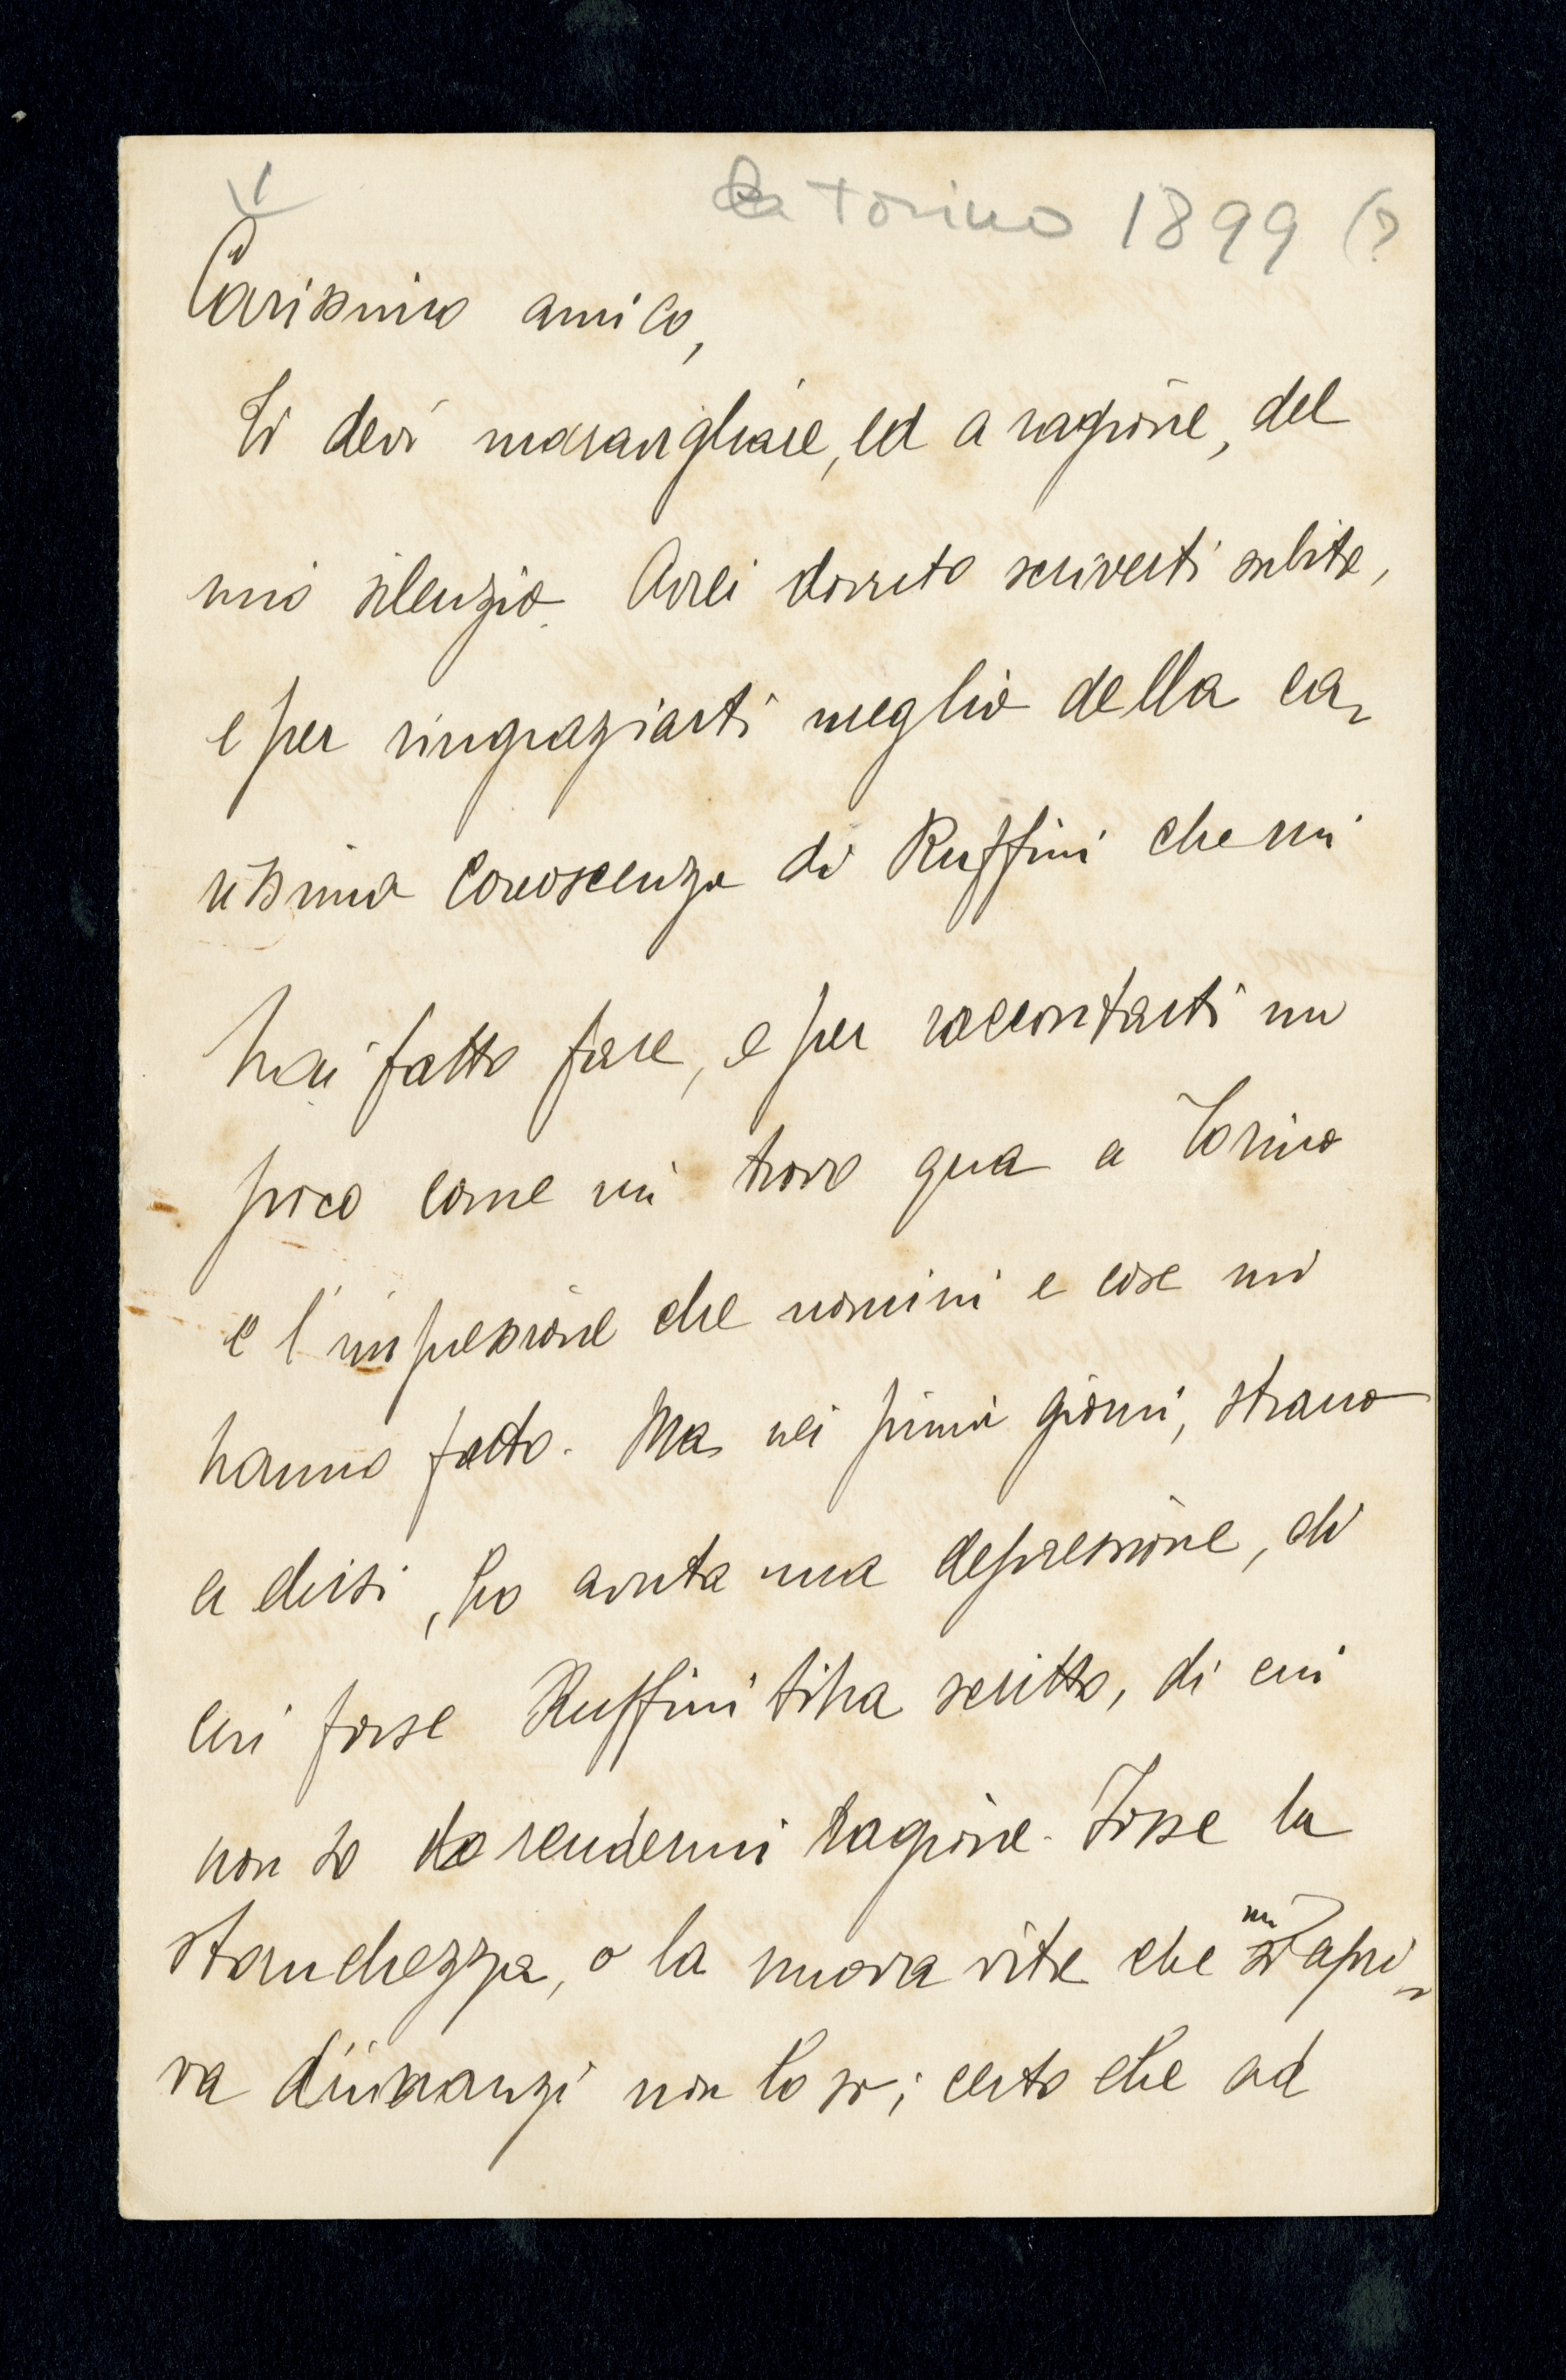 da Torino 1899 (?
Carissimo amico,
Ti devi maravigliare, ed a ragione, del
mio silenzio. Avrei dovuto scriverti subito,
e per ringraziarti meglio della ca-
rissima conoscenza di Ruffini che mi
hai fatto fare, e per raccontarti un
poco come mi trovo qua a Torino
e l'impressione che uomini e cose mi
hanno fatto. Ma nei primi giorni, strano
a dirsi, ho avuta una depressione, di
cui forse Ruffini ti ha scritto, di cui
non so da rendermi ragione. Fosse la
stanchezza, o la nuova vita che mi si apri-
va diinnanzi non lo so; certo che ad